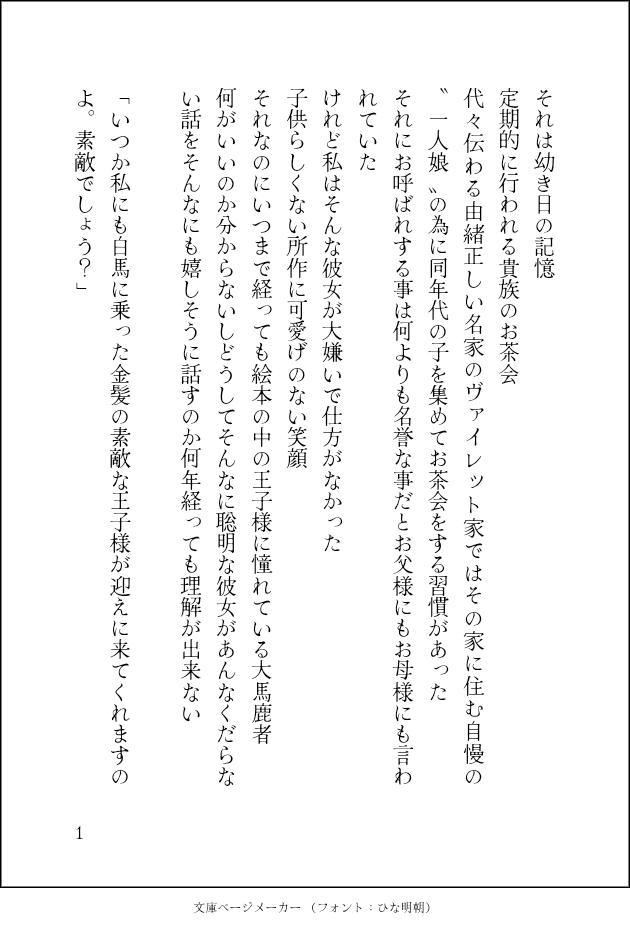 それは幼き日の記憶
定期的に行われる貴族のお茶会
代々伝わる由緒正しい名家のヴァイレット家ではその家に住む自慢の
〝一人娘〟の為に同年代の子を集めてお茶会をする習慣があった
それにお呼ばれする事は何よりも名誉な事だとお父様にもお母様にも言わ
れていた
けれど私はそんな彼女が大嫌いで仕方がなかった
子供らしくない所作に可愛げのない笑顔
それなのにいつまで経っても絵本の中の王子様に憧れている大馬鹿者
何がいいのか分からないしどうしてそんなに聡明な彼女があんなくだらな
い話をそんなにも嬉しそうに話すのか何年経っても理解が出来ない
「いつか私にも白馬に乗った金髪の素敵な王子様が迎えに来てくれますの
よ。素敵でしょう？」
1
文庫ページメーカー（フォント：ひな明朝）